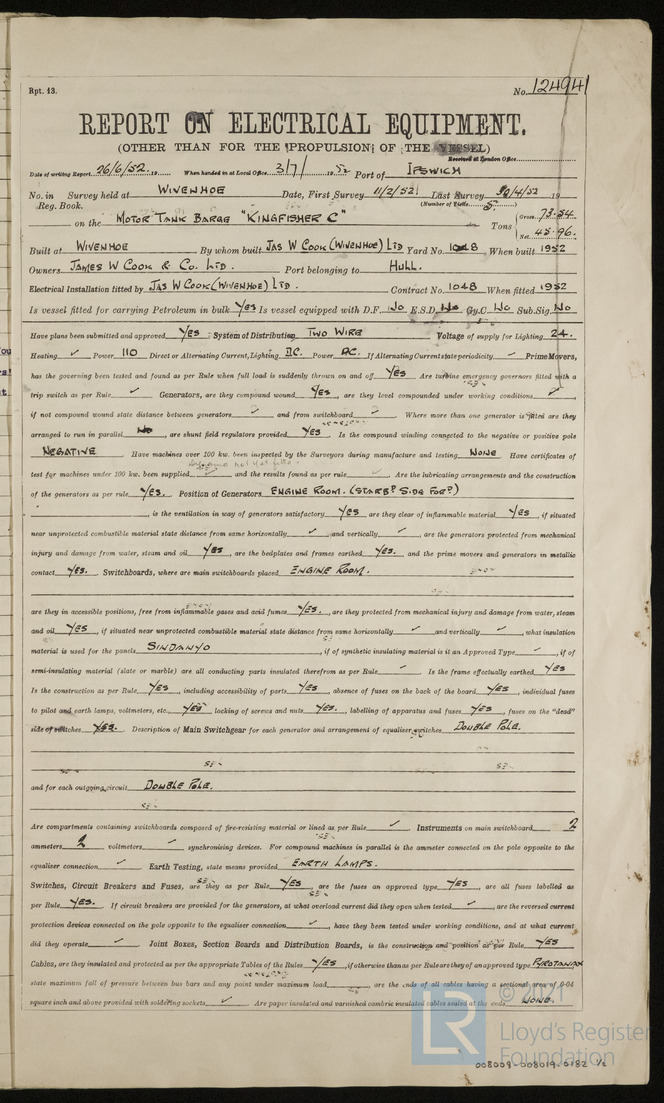 Rpt. 13.
No. 124941
REPORT ON ELECTRICAL EQUIPMENT.
(OTHER THAN FOR THE PROPULSION OF THE VESSEL)
Received at London Office
Date of writing Report 26/6/52. 19 When handed in at Local Office 3/7/ 1952 Port of IPSWICH
No. in Survey held at WIVENHOE Date, First Survey 11/2/52. Last Survey 30/4/52 19
Reg. Book. (Number of Visits 5.)
on the MOTOR TANK BARGE "KINGFISHER C" Tons Gross 73.54
Net 45.96.
Built at WIVENHOE By whom built JAS W COOK (WIVENHOE) LTD Yard No. 1048 When built 1952
Owners JAMES W COOK & CO. LTD. Port belonging to HULL.
Electrical Installation fitted by JAS W COOK (WIVENHOE) LTD. Contract No. 1048 When fitted 1952
Is vessel fitted for carrying Petroleum in bulk YES Is vessel equipped with D.F. NO E.S.D. NO Gy.C. NO Sub.Sig. NO
Have plans been submitted and approved YES System of Distribution TWO WIRE Voltage of supply for Lighting 24.
Heating ✓ Power 110 Direct or Alternating Current, Lighting D.C. Power D.C. If Alternating Current state periodicity ✓ Prime Movers,
has the governing been tested and found as per Rule when full load is suddenly thrown on and off YES Are turbine emergency governors fitted with a
trip switch as per Rule ✓ Generators, are they compound wound YES, are they level compounded under working conditions ✓,
if not compound wound state distance between generators ✓ and from switchboard ✓. Where more than one generator is fitted are they
arranged to run in parallel NO, are shunt field regulators provided YES. Is the compound winding connected to the negative or positive pole
NEGATIVE. Have machines over 100 kw. been inspected by the Surveyors during manufacture and testing NONE Have certificates of
test for machines under 100 kw. been supplied ✓ and the results found as per rule ✓. Are the lubricating arrangements and the construction
of the generators as per rule YES. Position of Generators ENGINE ROOM. (STARBD SIDE FORD)
, is the ventilation in way of generators satisfactory YES are they clear of inflammable material YES, if situated
near unprotected combustible material state distance from same horizontally ✓ and vertically ✓, are the generators protected from mechanical
injury and damage from water, steam and oil YES, are the bedplates and frames earthed YES. and the prime movers and generators in metallic
contact YES. Switchboards, where are main switchboards placed ENGINE ROOM.
are they in accessible positions, free from inflammable gases and acid fumes YES., are they protected from mechanical injury and damage from water, steam
and oil YES, if situated near unprotected combustible material state distance from same horizontally ✓ and vertically ✓, what insulation
material is used for the panels SINDANYO, if of synthetic insulating material is it an Approved Type ✓, if of
semi-insulating material (slate or marble) are all conducting parts insulated therefrom as per Rule ✓ Is the frame effectually earthed YES
Is the construction as per Rule YES, including accessibility of parts YES, absence of fuses on the back of the board YES, individual fuses
to pilot and earth lamps, voltmeters, etc. YES locking of screws and nuts YES. labelling of apparatus and fuses YES, fuses on the "dead"
side of switches YES. Description of Main Switchgear for each generator and arrangement of equaliser switches DOUBLE POLE.
and for each outgoing circuit DOUBLE POLE.
Are compartments containing switchboards composed of fire-resisting material or lined as per Rule ✓ Instruments on main switchboard 2
ammeters 2 voltmeters ✓ synchronising devices. For compound machines in parallel is the ammeter connected on the pole opposite to the
equaliser connection ✓ Earth Testing, state means provided EARTH LAMPS.
Switches, Circuit Breakers and Fuses, are they as per Rule YES, are the fuses an approved type YES, are all fuses labelled as
per Rule YES. If circuit breakers are provided for the generators, at what overload current did they open when tested ✓, are the reversed current
protection devices connected on the pole opposite to the equaliser connection ✓, have they been tested under working conditions, and at what current
did they operate ✓ Joint Boxes, Section Boards and Distribution Boards, is the construction and position as per Rule YES
Cables, are they insulated and protected as per the appropriate Tables of the Rules YES, if otherwise than as per Rule are they of an approved type PYROTANAX
state maximum fall of pressure between bus bars and any point under maximum load, are the ends of all cables having a sectional area of 0·04
square inch and above provided with soldering sockets ✓ Are paper insulated and varnished cambric insulated cables sealed at the ends NONE.
© 2021
LR
Lloyd's Register
Foundation
008009-008019-0182 1/2